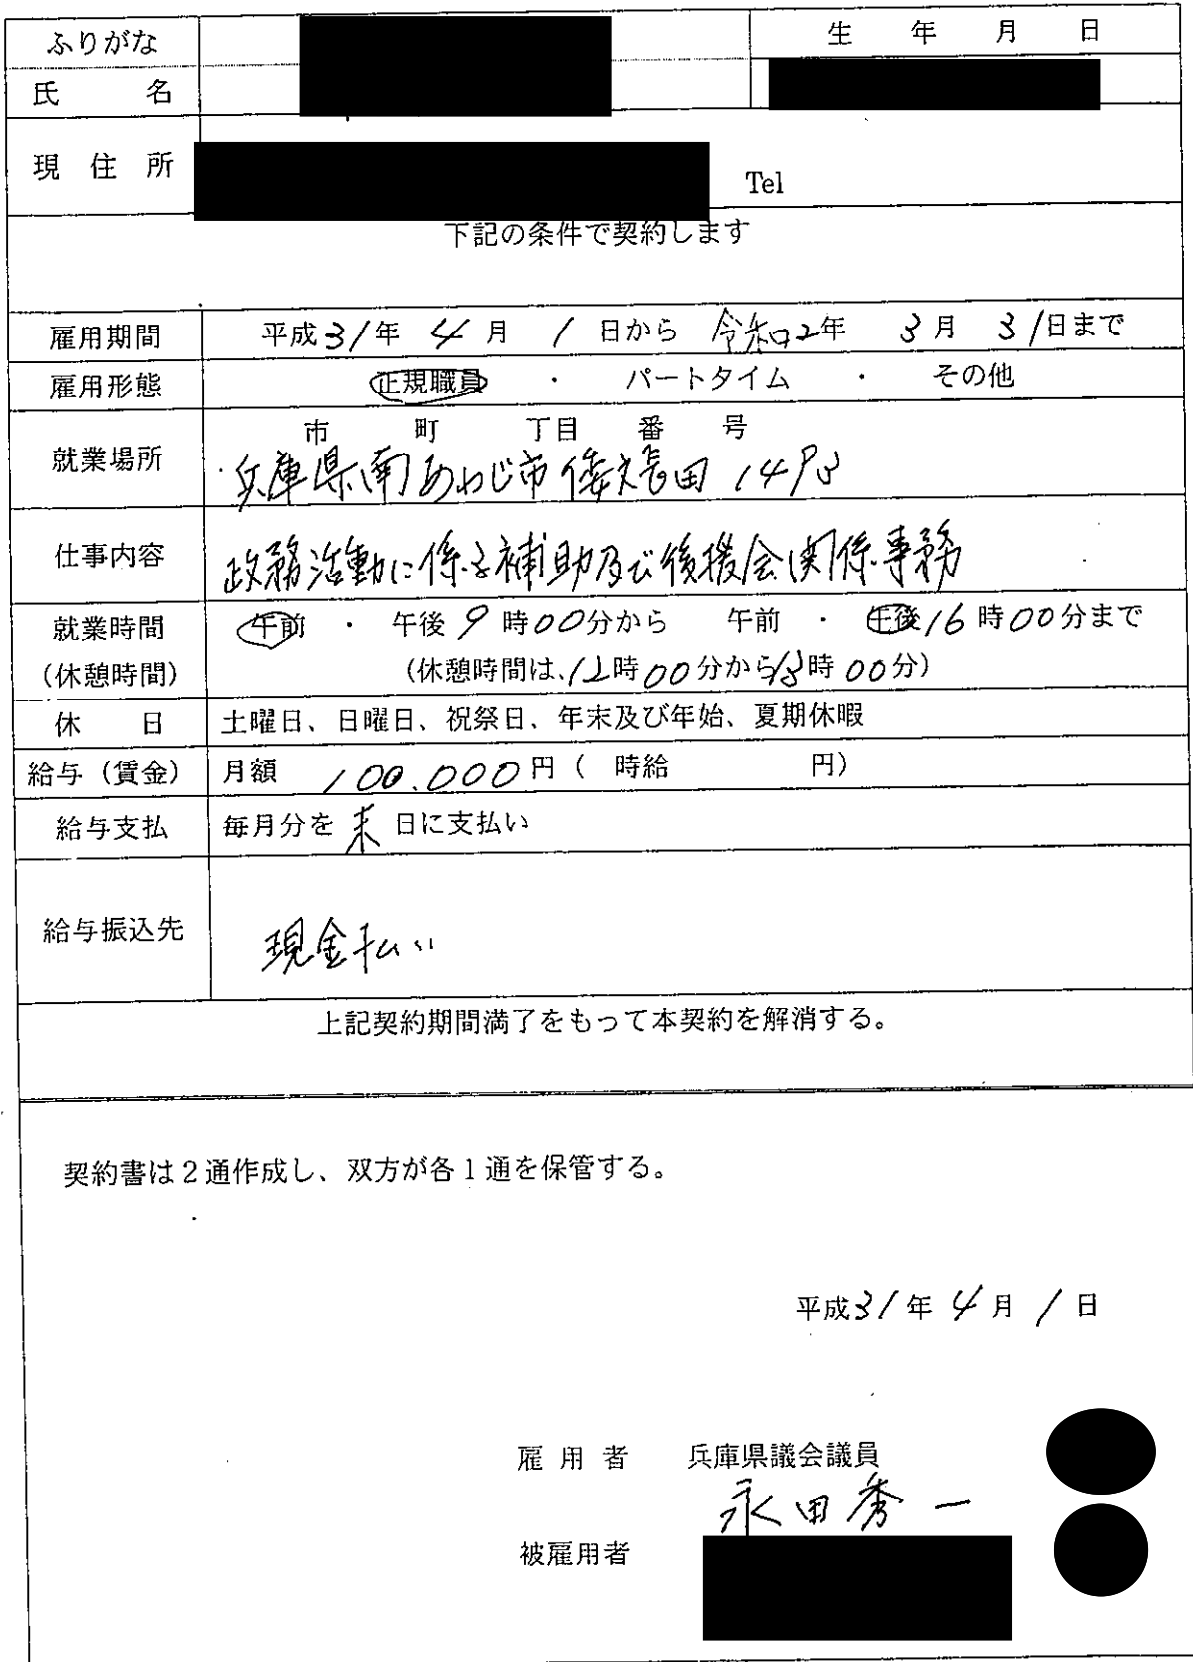 ふりがな
生 年 月 日
氏 名
現 住 所
Tel
下記の条件で契約します
雇用期間 平成31年 4月 1日から 令和2年 3月 31日まで
雇用形態 正規職員 ・ パートタイム ・ その他
市 町 丁目 番 号
就業場所
兵庫県南あわじ市倭文長田1493
仕事内容 政務活動に係る補助及び後援会関係事務
就業時間 午前 ・ 午後 9時00分から 午前 ・ 午後16時00分まで
(休憩時間) (休憩時間は、12時00分から13時00分)
休 日 土曜日、日曜日、祝祭日、年末及び年始、夏期休暇
給与(賃金) 月額 100.000円( 時給 円)
給与支払 毎月分を 末 日に支払い
給与振込先 現金払い
上記契約期間満了をもって本契約を解消する。
契約書は2通作成し、双方が各1通を保管する。
平成31年4月1日
雇用者 兵庫県議会議員
永田秀一
被雇用者